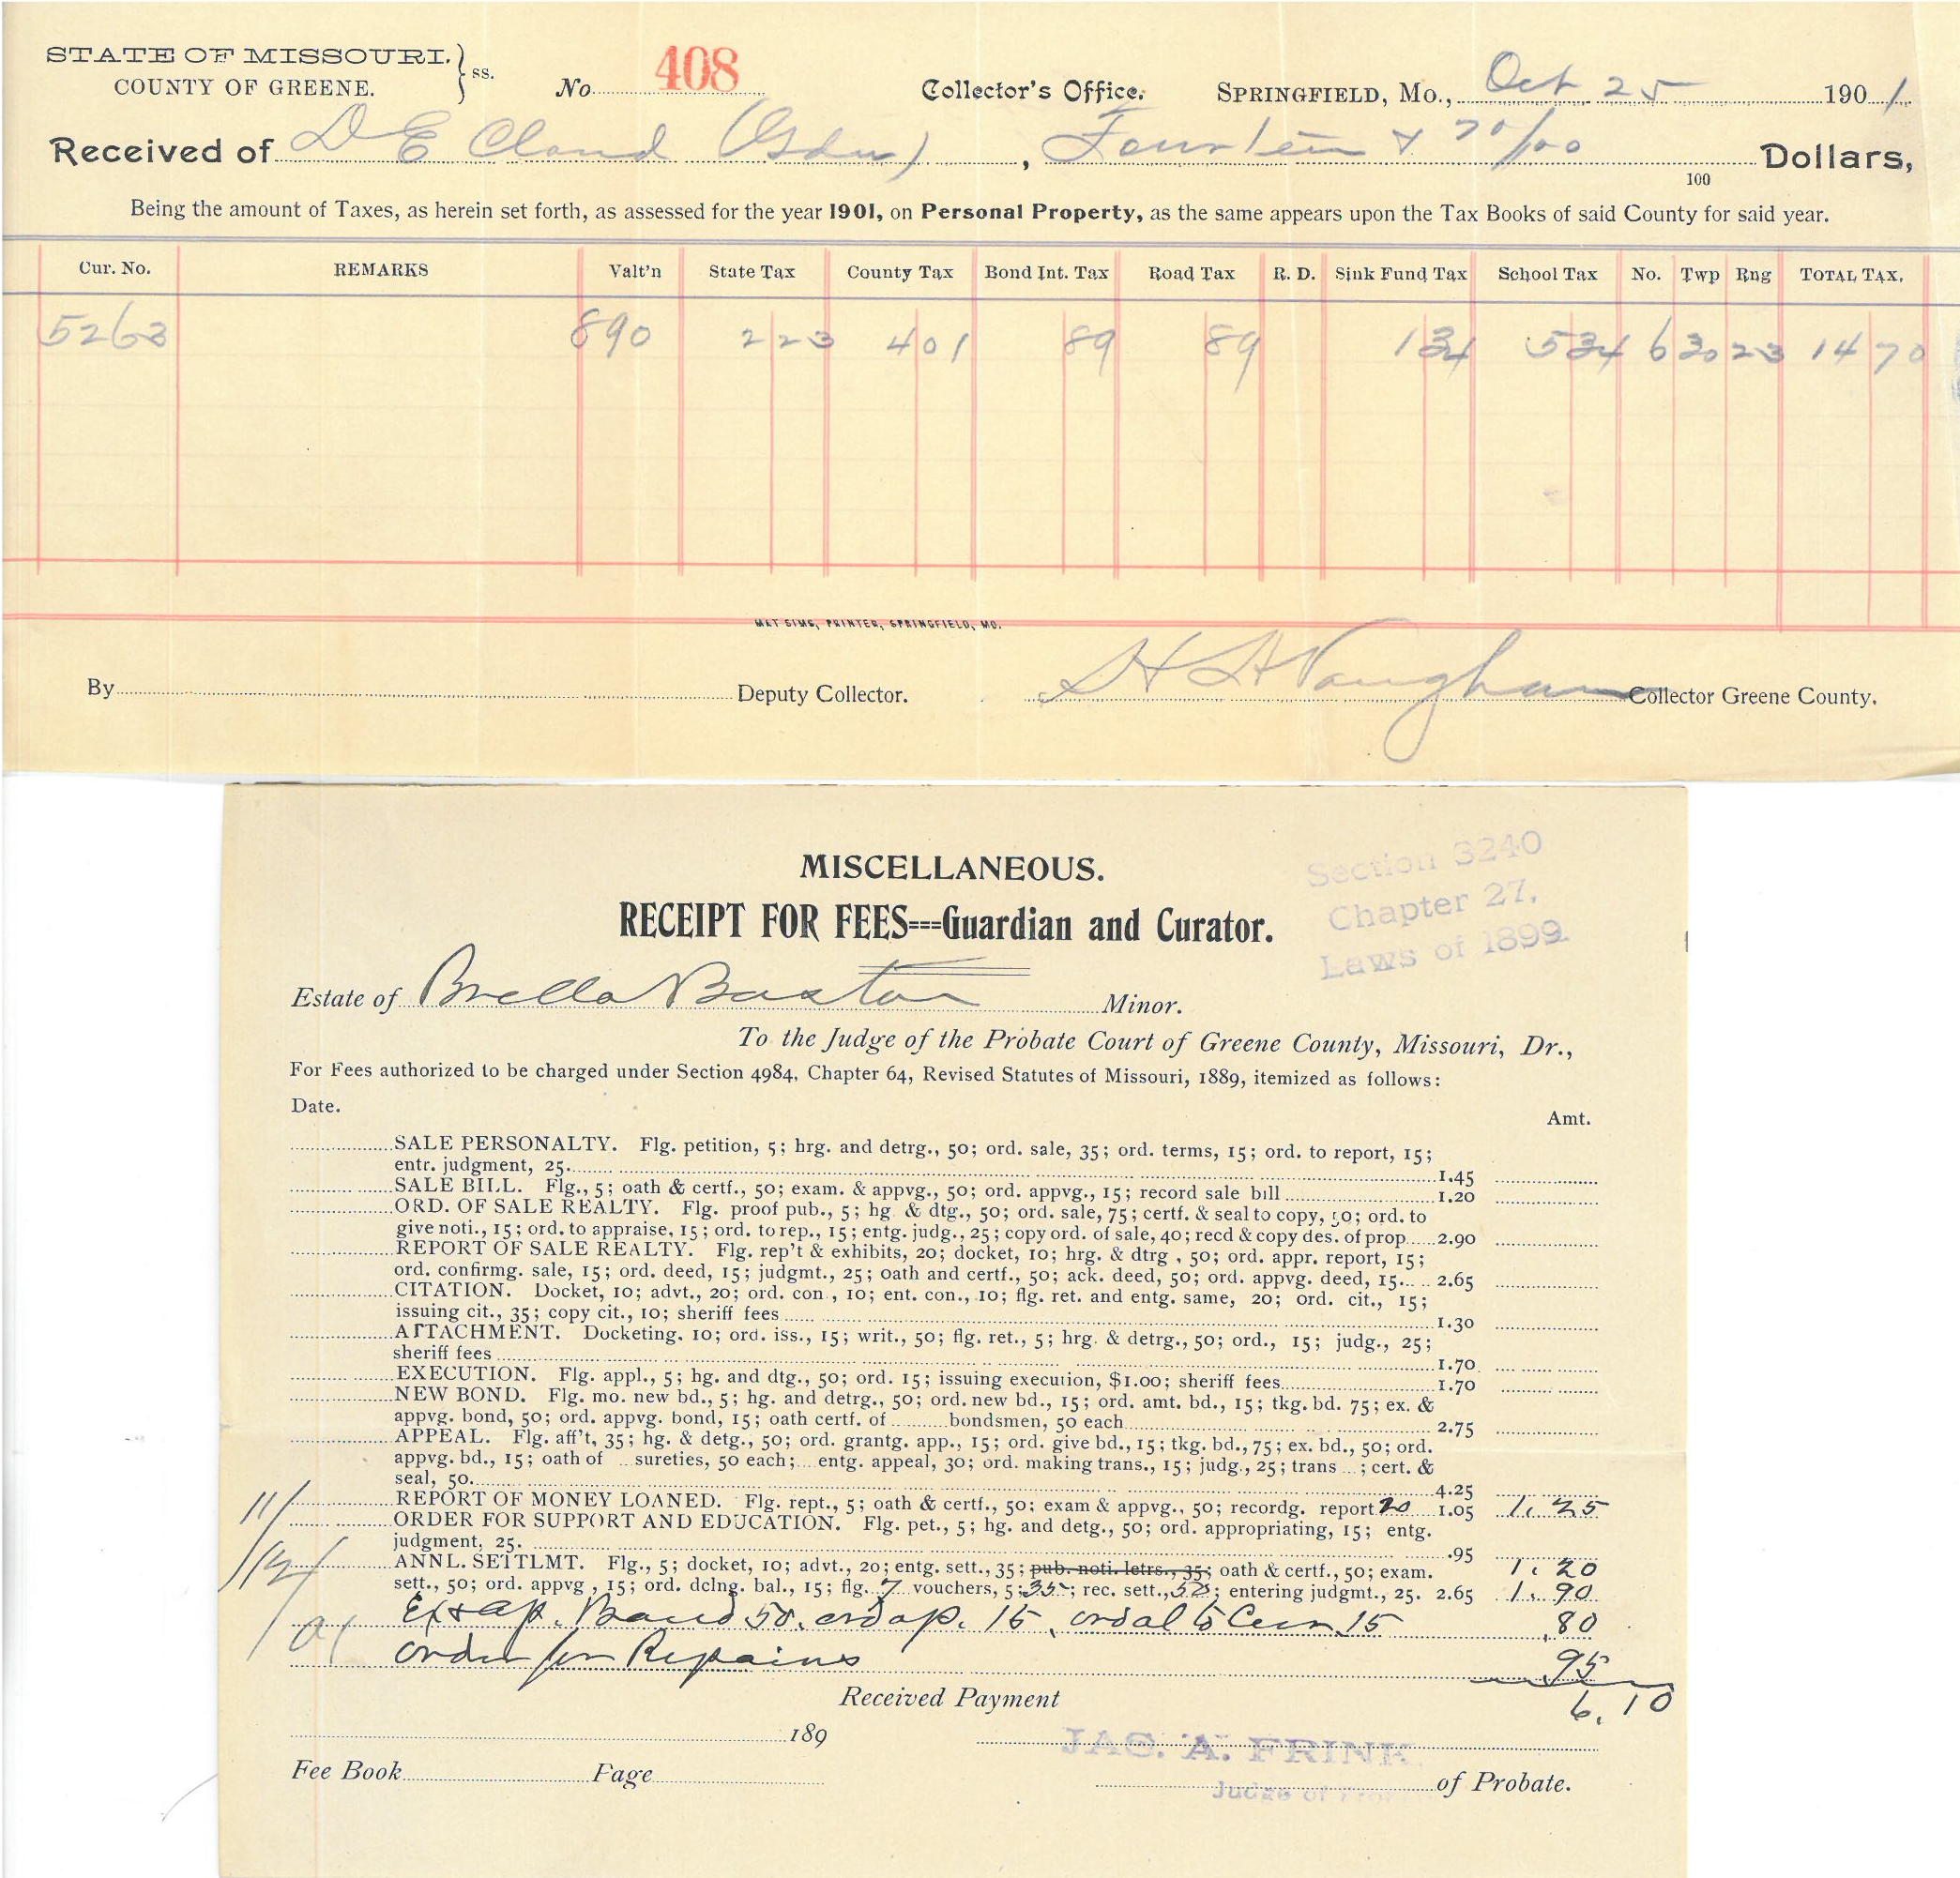 STATE OF MISSOURI. } ss.
COUNTY OF GREENE.
No. 408 Collector's Office. SPRINGFIELD, Mo., Oct 25 1901
Received of D E Cloud (Gdn), Fourteen & 70/100 Dollars,
100
Being the amount of Taxes, as herein set forth, as assessed for the year 1901, on Personal Property, as the same appears upon the Tax Books of said County for said year.
Cur. No. REMARKS Valt'n State Tax County Tax Bond Int. Tax Road Tax R. D. Sink Fund Tax School Tax No. Twp Rng TOTAL TAX.
5263 890 2 23 4 01 89 89 1 34 5 34 6 30 23 14 70
MAT SIMS, PRINTER, SPRINGFIELD, MO.
By Deputy Collector. Vaughan Collector Greene County.
MISCELLANEOUS.
RECEIPT FOR FEES===Guardian and Curator.
Section 3240
Chapter 27,
Laws of 1899.
Estate of Baxter Minor.
To the Judge of the Probate Court of Greene County, Missouri, Dr.,
For Fees authorized to be charged under Section 4984, Chapter 64, Revised Statutes of Missouri, 1889, itemized as follows:
Date. Amt.
SALE PERSONALTY. Flg. petition, 5; hrg. and detrg., 50; ord. sale, 35; ord. terms, 15; ord. to report, 15;
entr. judgment, 25. 1.45
SALE BILL. Flg., 5; oath & certf., 50; exam. & appvg., 50; ord. appvg., 15; record sale bill 1.20
ORD. OF SALE REALTY. Flg. proof pub., 5; hg. & dtg., 50; ord. sale, 75; certf. & seal to copy, 50; ord. to
give noti., 15; ord. to appraise, 15; ord. to rep., 15; entg. judg., 25; copy ord. of sale, 40; recd & copy des. of prop. 2.90
REPORT OF SALE REALTY. Flg. rep't & exhibits, 20; docket, 10; hrg. & dtrg., 50; ord. appr. report, 15;
ord. confirmg. sale, 15; ord. deed, 15; judgmt., 25; oath and certf., 50; ack. deed, 50; ord. appvg. deed, 15. 2.65
CITATION. Docket, 10; advt., 20; ord. con., 10; ent. con., 10; flg. ret. and entg. same, 20; ord. cit., 15;
issuing cit., 35; copy cit., 10; sheriff fees 1.30
ATTACHMENT. Docketing. 10; ord. iss., 15; writ., 50; flg. ret., 5; hrg. & detrg., 50; ord., 15; judg., 25;
sheriff fees 1.70
EXECUTION. Flg. appl., 5; hg. and dtg., 50; ord. 15; issuing execution, $1.00; sheriff fees 1.70
NEW BOND. Flg. mo. new bd., 5; hg. and detrg., 50; ord. new bd., 15; ord. amt. bd., 15; tkg. bd. 75; ex. &
appvg. bond, 50; ord. appvg. bond, 15; oath certf. of bondsmen, 50 each 2.75
APPEAL. Flg. aff't, 35; hg. & detg., 50; ord. grantg. app., 15; ord. give bd., 15; tkg. bd., 75; ex. bd., 50; ord.
appvg. bd., 15; oath of sureties, 50 each; entg. appeal, 30; ord. making trans., 15; judg., 25; trans ; cert. &
seal, 50. 4.25
11/ REPORT OF MONEY LOANED. Flg. rept., 5; oath & certf., 50; exam & appvg., 50; recordg. report 20 1.05 1.25
ORDER FOR SUPPORT AND EDUCATION. Flg. pet., 5; hg. and detg., 50; ord. appropriating, 15; entg.
judgment, 25. .95
/12/ ANNL. SETTLMT. Flg., 5; docket, 10; advt., 20; entg. sett., 35; pub. noti. letrs., 35; oath & certf., 50; exam. 1.20
sett., 50; ord. appvg, 15; ord. dclng. bal., 15; flg. 7 vouchers, 5; 35; rec. sett., 50; entering judgmt., 25. 2.65 1.90
Ex & ap. Bond 50. ord ap. 15, 15 .80
/01 Order for Repairs 95
6.10
Received Payment
189
JAS. A. FRINK
Fee Book Page of Probate.
Judge of Pro